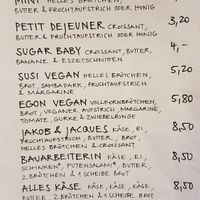 MINI HELLES BRÖTCHEN,
BUTTER & FRUCHTAUFSTRICH ODER HONIG
PETIT DEJEUNER CROISSANT, 3,20
BUTTER & FRUCHTAUFSTRICH ODER HONIG
SUGAR BABY CROISSANT, BUTTER, 4,-
BANANE & ESZETSCHNITTEN
SUSI VEGAN HELLES BRÖTCHEN, 5,20
BROT, SAMBADARK, FRUCHTAUFSTRICH
& MARGARINE
EGON VEGAN VOLLKORNBRÖTCHEN, 5,80
BROT, VEGANER AUFSTRICH, MARGARINE,
TOMATE, GURKE & ZWIEBELRINGE
JAKOB & JACQUES KÄSE, EI, 8,50
FRUCHTAUFSTRICH, BUTTER, BROT,
HELLES BRÖTCHEN & CROISSANT
BAUARBEITERIN KÄSE, EI, 8,50
SCHINKEN, PUTENSALAMI, BUTTER,
2 BRÖTCHEN & 1 SCHEIBE BROT
ALLES KÄSE KÄSE, KÄSE, KÄSE, 8,50
BUTTER, 2 BRÖTCHEN & 1 SCHEIBE BROT